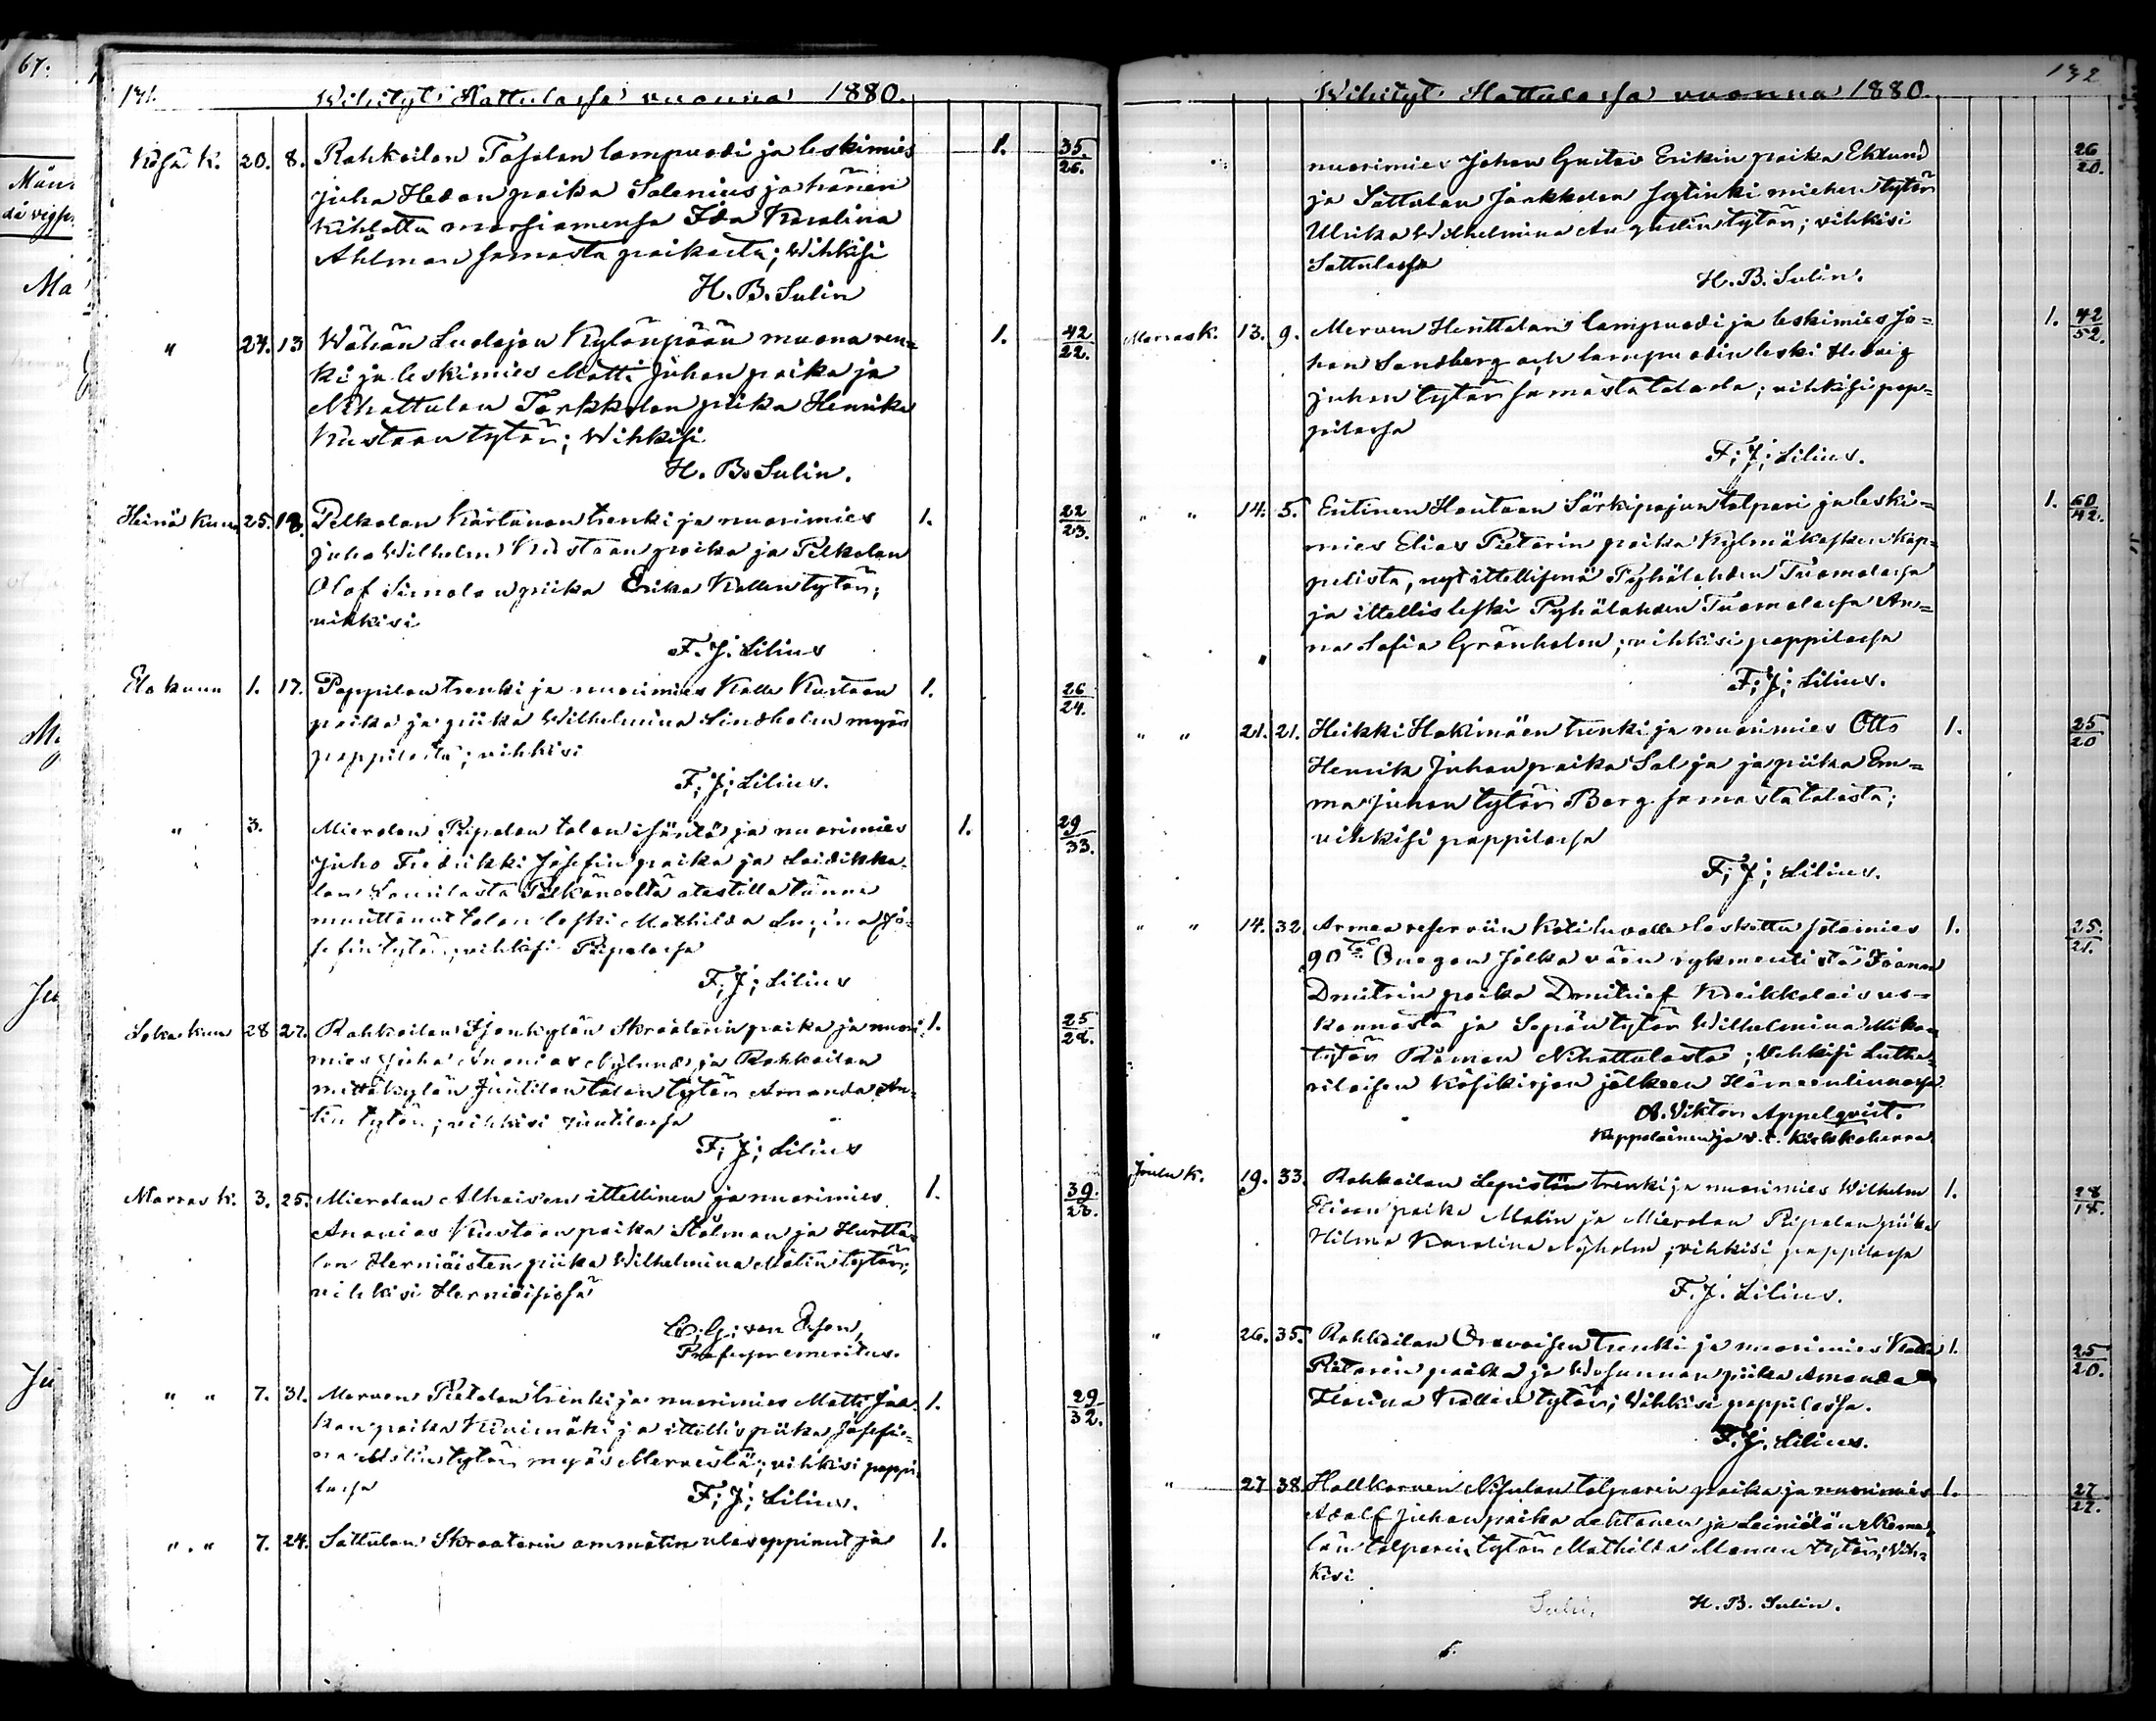 67.
131.
Wihityt Hattulassa vuonna 1880.
Kesä k. 20. 8. Rahkoilan Tasalan lampuodi ja leskimies 1. 35/26.
Juha Hedan poika Salenius ja hänen
kihlattu morsiamensa Ida Karolina
Ahlman samasta paikasta; Wihkisi
H. B. Sulin
" 24. 13 Wähän Ludojan Kylänpään muona ren= 1. 42/22.
ki ja leskimies Matti Juhan poika ja
Nihattulan Tarkkolan piika Henrika
Kustaan tytär; Wihkisi
H. B. Sulin.
Heinä kuu 25. 18. Pelkolan Kärtänan trenki ja nuorimies 1. 22/23.
Juha Wilhelm Kustaan poika ja Pelkolan
Olof Simolan piika Erika Kallen tytär;
vihkisi
F. J. Lilius
Elo kuu 1. 17. Pappilan trenki ja nuorimies Kalle Kustaan 1. 26/24.
poika ja piika Wilhelmina Lindholm myös
pappilasta; vihkisi
F; J; Lilius.
" 3. Mierolan Piipalan talon isäntä ja nuorimies 1. 29/33.
Juho Fredrikki Josefin poika ja Laidikka-
lan Pälkäneeltä atestilla tänne
muuttanut talon leski Mathilda Jo-
sefin tytär; vihkisi Piipalassa
F; J; Lilius
Loka kuu 28 27. Rahkoilan Ijankylän Skräätärin poika ja nuori- 1. 25/28.
mies Juha Ananias Nylund ja Rahkoilan
mettäkylän Juutilan talon tytär Amanda An-
tin tytär; vihkisi Juutilassa
F; J; Lilius
Marras k. 3. 25. Mierolan Alhaisen ittellinen ja nuorimies 1. 39/28.
Ananias Kustaan poika Stålman ja Hurtta-
lan Herniäisten piika Wilhelmina Matin tytär;
vihkisi Herniäisissä
G; von Essen,
Professor emeritus.
" " 7. 31. Merven Pietolan trenki ja nuorimies Matti Jaa- 1. 29/32.
kon poika Kivimäki ja ittellis piika Josefi=
na Matin tytär myös Mervestä; vihkisi pappi-
lassa
F; J; Lilius.
" " 7. 24. Sattulan Skraatarin ammatin ulosoppinut ja 1.
132
Wihityt Hattulassa vuonna 1880.
nuorimies Johan Gustav Erikin poika Eklund 26/20.
ja Sattulan Jaakkolan hytinki miehen tytär
Ulrika Wilhelmina Augustin tytär; vihkisi
Sattulassa
H. B. Sulin.
Marras k. 13. 9. Merven Henttalan lampuodi ja leskimies Jo= 1. 42/52.
han Sandberg och lampuodin leski Hedvig
Juhan tytär samasta talosta; vihkisi pap=
pilassa
F; J; Lilius.
" " 14. 5. Entinen Hautaan Särkipajun talpari ja leski= 1. 60/42.
mies Elias Pietarin poika Kylmäkosken kap=
pelista, nyt ittellisenä Pyhälahden Tuomolassa
ja ittellis leski Pyhälahden Tuomolassa An=
na Sofia Grönholm; vihkisi pappilassa
F; J; Lilius.
" " 21. 21. Heikki Hakimäen trenki ja nuorimies Otto 1. 25/20
Henrik Juhan poika Salja ja piika Em=
ma Juhan tytär Berg samasta talosta;
vihkisi pappilassa
F; J; Lilius.
" " 14. 32. Armea reserviin kotiluvalle laskettu sotamies 1. 25./21.
90 Onegan Jalka väen rykmentistä Iwanan
Dmitrin poika Dmitrief us=
konnosta ja Sepän tytär Wilhelmina Mika=
tytär Råman Nihattulasta; Wihkisi Luthe=
rilaisen Käsikirjan jälkeen Hämeenlinnassa
A. Viktor Appelqvist.
Kappalainen ja v. t. Kirkkoherra.
Joulu k. 19. 33. Rahkoilan Lepistön trenki ja nuorimies Wilhelm 1. 28/18.
poika Malin ja Mierolan Piipalan piika
Hilma Karolina Nyholm; vihkisi pappilassa
F. J. Lilius.
" 26. 35. Rahkoilan Oravaisen trenki ja nuorimies Kalle 1. 25/20.
Pietarin poika ja Wesunnan piika Amanda
Flarina Kallen tytär; Wihkisi pappilassa.
F. J. Lilius.
" 27 38. Hallkorven Nisulan talparin poika ja nuorimies 1. 27/22.
Adolf Juhan poika Lehtonen ja Leiniälän
län talparin tytär Mathilda Manan tytär; Wih=
kisi
H. B. Sulin.